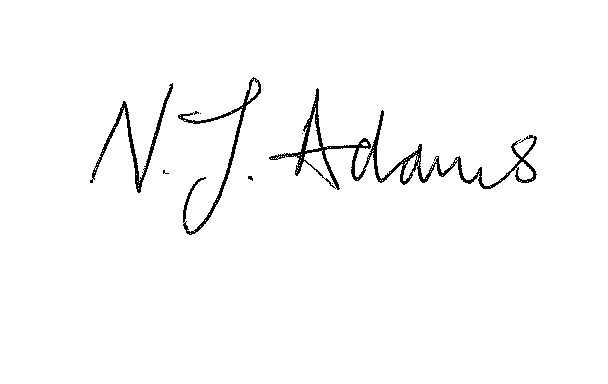 N. J. Adams